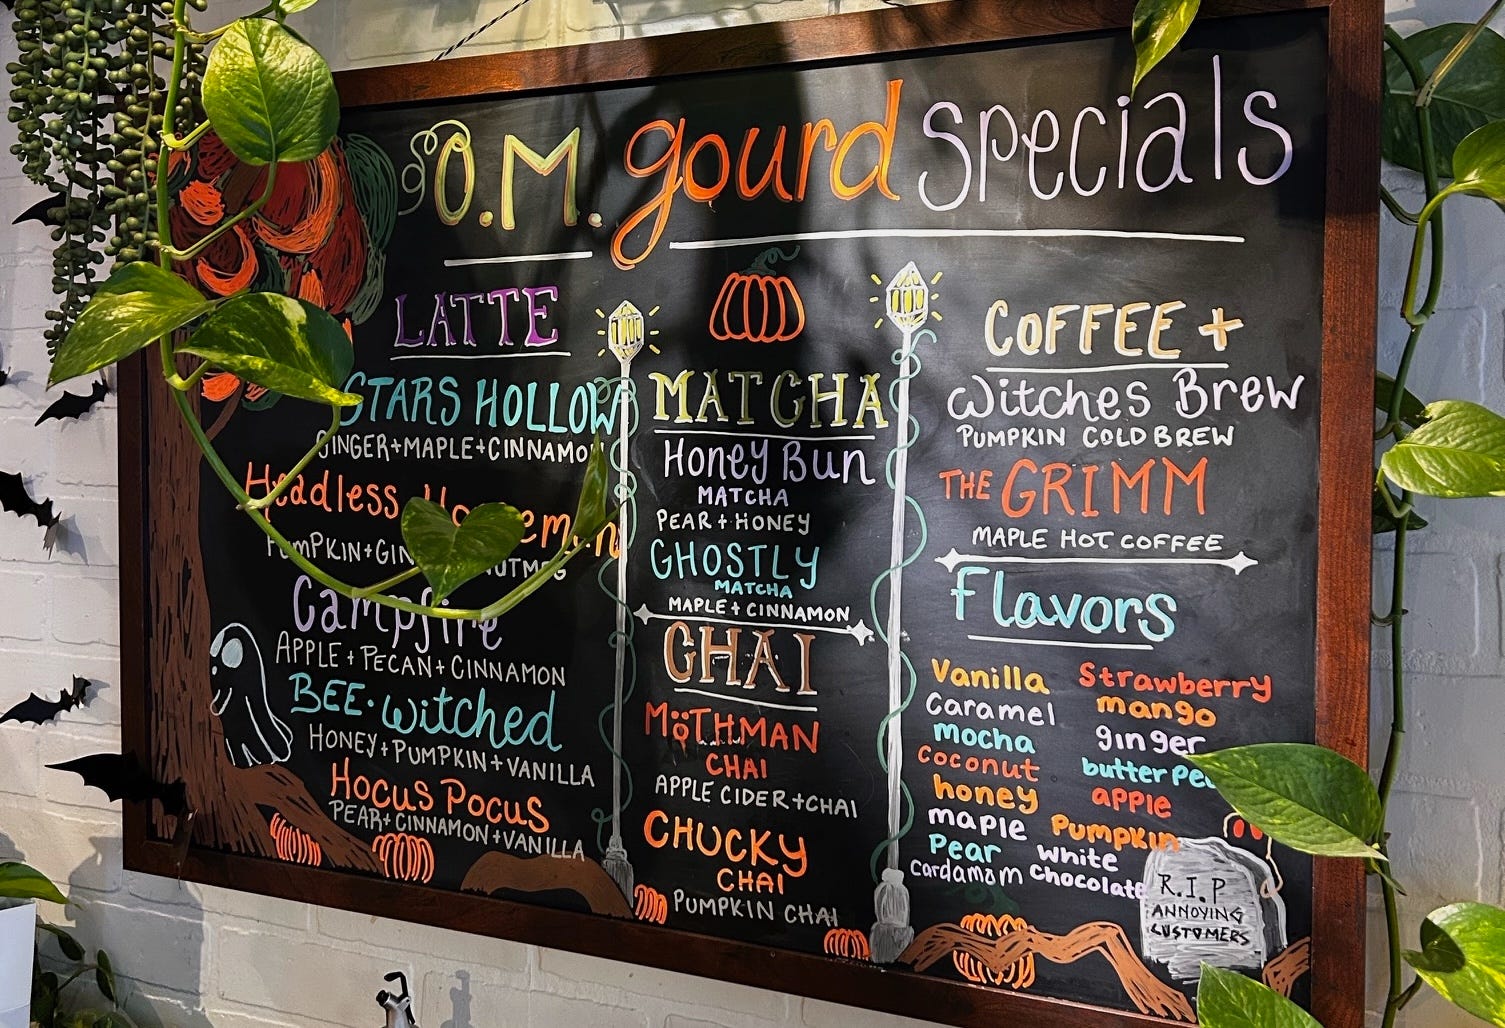 O.M. gourd specials
LATTE
STARS HOLLOW
GINGER+MAPLE+CINNAMON
Headless Horseman
PUMPKIN+GIN NUTMEG
Campfire
APPLE+PECAN+CINNAMON
BEE·witched
HONEY+PUMPKIN+VANILLA
HOCUS POCUS
PEAR+CINNAMON+VANILLA
MATCHA
Honey Bun
MATCHA
PEAR+HONEY
GHOSTLY
MATCHA
MAPLE+CINNAMON
CHAI
MOTHMAN
CHAI
APPLE CIDER+CHAI
CHUCKY
CHAI
PUMPKIN CHAI
COFFEE+
Witches Brew
PUMPKIN COLD BREW
THE GRIMM
MAPLE HOT COFFEE
Flavors
Vanilla
Caramel
mocha
Coconut
honey
maple
Pear
cardamom
Strawberry
mango
ginger
butter pec
apple
Pumpkin
white
chocolate
R.I.P
ANNOYING
CUSTOMERS